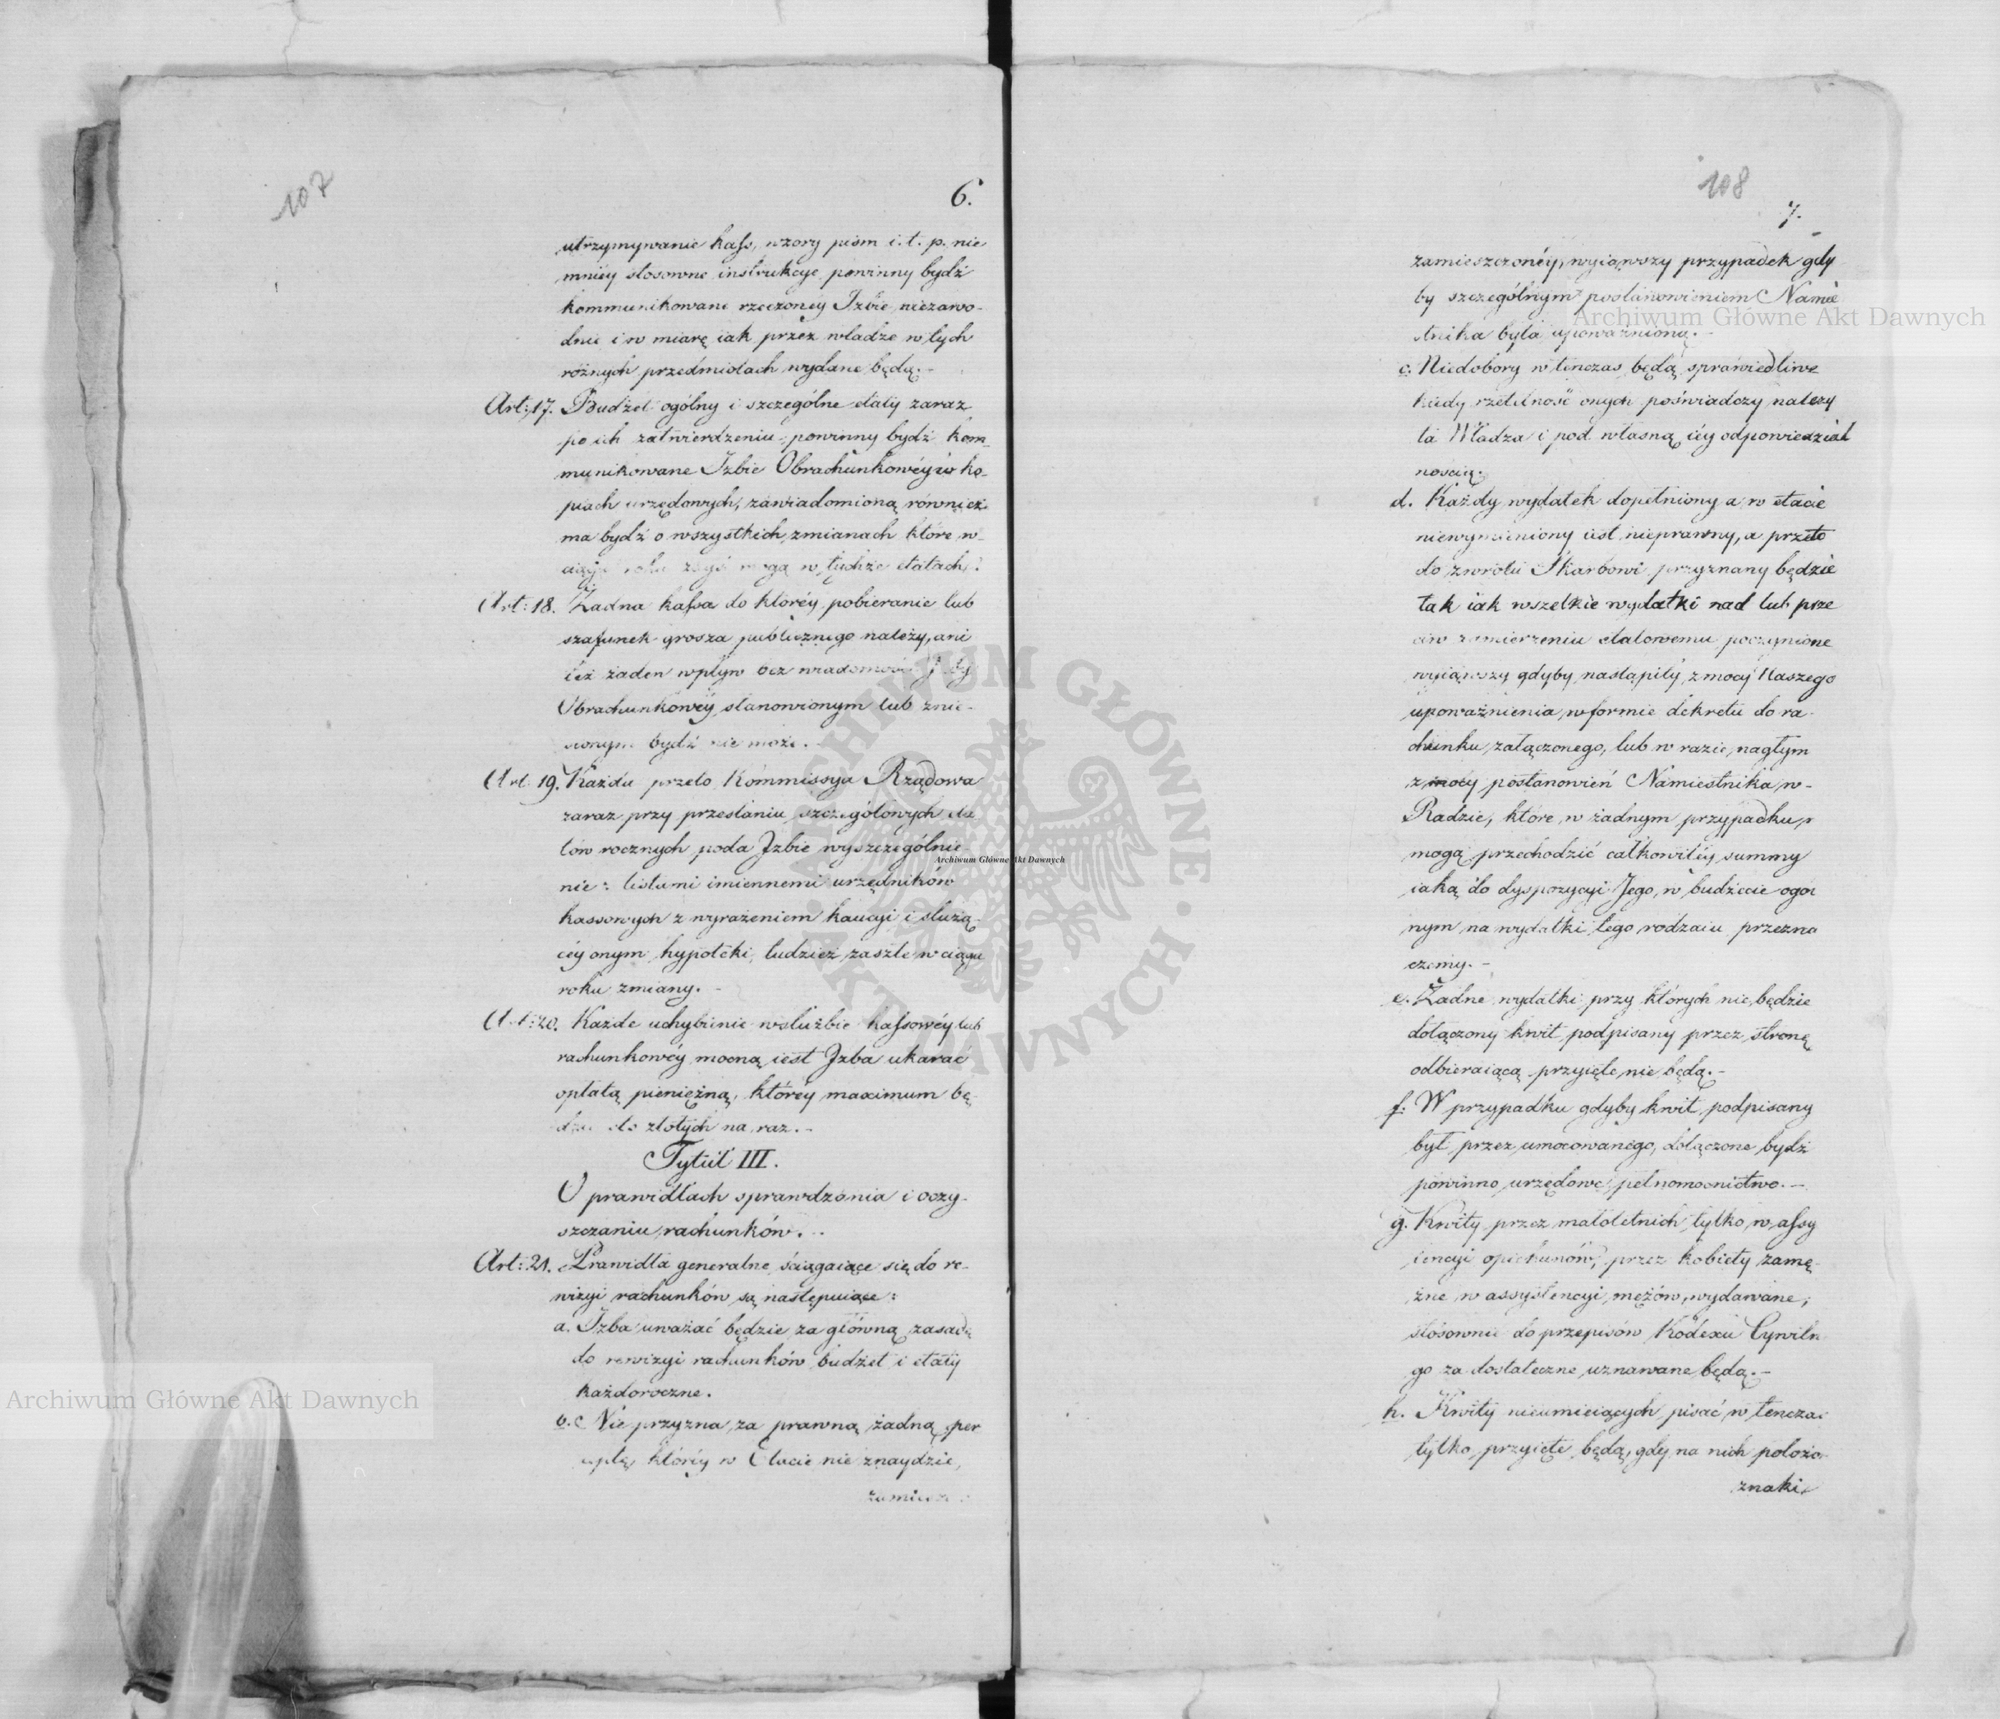 107
6.
utrzymywanie kass, wzory pism i. t. p. nie
mniéy stosowne instrukcye powinny bydź
kommunikowane rzeczoney Izbie niezawo-
dnie i w miarę iak przez władze w tych
różnych przedmiotach wydane będą.-
Art: 17. Budżet ogólny i szczególne etaty zaraz
po ich zatwierdzeniu powinny bydź kom-
munikowane Izbie Obrachunkowéy w ko-
piach urzędowych, zawiadomioną również
ma bydź o wszystkich zmianach które w
ciągu roku zayść mogą w tychże etatach.
Art: 18. Żadna kassa do któréy pobieranie lub
szafunek grosza publicznego należy, ani
też żaden wpływ bez wiadomości Izby
Obrachunkowéy stanowionym lub znie-
sionym bydź nie może.-
Art. 19. Każda przeto Kommissya Rządowa
zaraz przy przesłaniu szczegółowych eta
tów rocznych poda Izbie wyszczególnie-
nie: listami imiennemi urzędników
kassowych z wyrażeniem kaucyi i służą-
céy onym hypoteki, tudzież zaszłe w ciągu
roku zmiany.-
Art: 20. Każde uchybienie w służbie kassowéy lub
rachunkowéy mocną iest Izba ukarać
opłatą pieniężną, któréy maximum bę
dzie sto złotych na raz.-
Tytuł III.
O prawidłach sprawdzania i oczy-
szczaniu rachunków.
Art: 21. Prawidła generalne ściągaiące się do re-
wizyi rachunków są następuiące:
a. Izba uważać będzie za główną zasadę
do rewizyi rachunków budżet i etaty
każdoroczne.
b. Nie przyzna za prawną żadną per
ceptę któréy w Etacie nie znaydzie,
zamiesz
108
7.
zamieszczonéy, wyiąwszy przypadek gdy
by szczególnym postanowieniem Namie
stnika była upoważnioną.-
c. Niedobory w tenczas będą sprawiedliwe
kiedy rzetelność onych poświadczy należy
ta Władza i pod własną iéy odpowiedzial
nością.
d. Każdy wydatek dopełniony a w etacie
niewymieniony iest nieprawny, a przeto
do zwrotu Skarbowi przyznany będzie
tak iak wszelkie wydatki nad lub prze
ciw zamierzeniu etatowemu poczynione
wyiąwszy gdyby nastąpiły z mocy Naszego
upoważnienia w formie dekretu do ra-
chunku załączonego, lub w razie nagłym
z mocy postanowień Namiestnika w-
Radzie, które w żadnym przypadku
mogą przechodzić całkowitéy summy
iaką do dyspozycyi Jego, w budżecie ogól
nym na wydatki tego rodzaiu przezna
czemy.-
e. Żadne wydatki przy których nie będzie
dołączony kwit podpisany przez stronę
odbieraiącą przyięte nie będą.-
f. W przypadku gdyby kwit podpisany
był przez umocowanego, dołączone bydź
powinno urzędowe pełnomocnictwo.-
g. Kwity przez małoletnich tylko w assy
stencyi opiekunów, przez kobiety zamę-
żne w assystencyi mężów, wydawane,
stósownie do przepisów Kodexu Cywiln
go za dostateczne uznawane będą.-
h. Kwity nieumieiących pisać w tenczas
tylko przyięte będą, gdy na nich położo
znaki
Archiwum Główne Akt Dawnych
Archiwum Główne Akt Dawnych
Archiwum Główne Akt Dawnych
ARCHIWUM GŁÓWNE AKT DAWNYCH